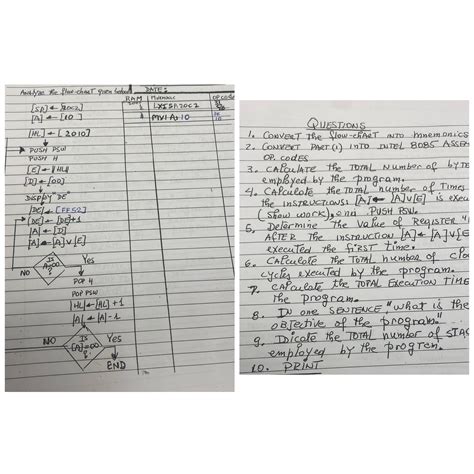 Analyze the flow-chart given below
DATE:
RAM Mnemonic OPCODE
[SP] ← 20C2
LXI SP, 20C2
[A] ← [10]
MVI A, 10
[HL] ← [2010]
PUSH PSW
PUSH H
[E] ← [HL]
[D] ← [00]
DISPLAY DE
[DE] ← [FF52]
[DE] ← [DE]+1
[A] ← [D]
[A] ← [A]∨[E]
IS
A=00
?
NO Yes
POP H
POP PSW
[HL] ← [HL]+1
[A] ← [A]-1
NO Yes
IS
[A]=00
?
END
QUESTIONS
1. CONVERT the flow-chart INTO mnemonics
2. CONVERT PART(1) INTO INTEL 8085 ASSEM
OP. codes
3. CALCULATE the TOTAL Number of byte
employed by the program.
4. CALCULATE the TOTAL number of Times
the INSTRUCTIONS: [A] ← [A]∨[E] is execu
(show work), and PUSH PSW.
5. Determine the Value of REGISTER "
AFTER the INSTRUCTION [A] ← [A]∨[E
executed the first time.
6. CALCULATE the Total number of cloc
cycles executed by the program.
7. CALCULATE the TOTAL EXECUTION TIME
the program.
8. IN one SENTENCE, "what is the
objective of the program."
9. Dicate the TOTAL number of STAC
employed by the program.
10. PRINT